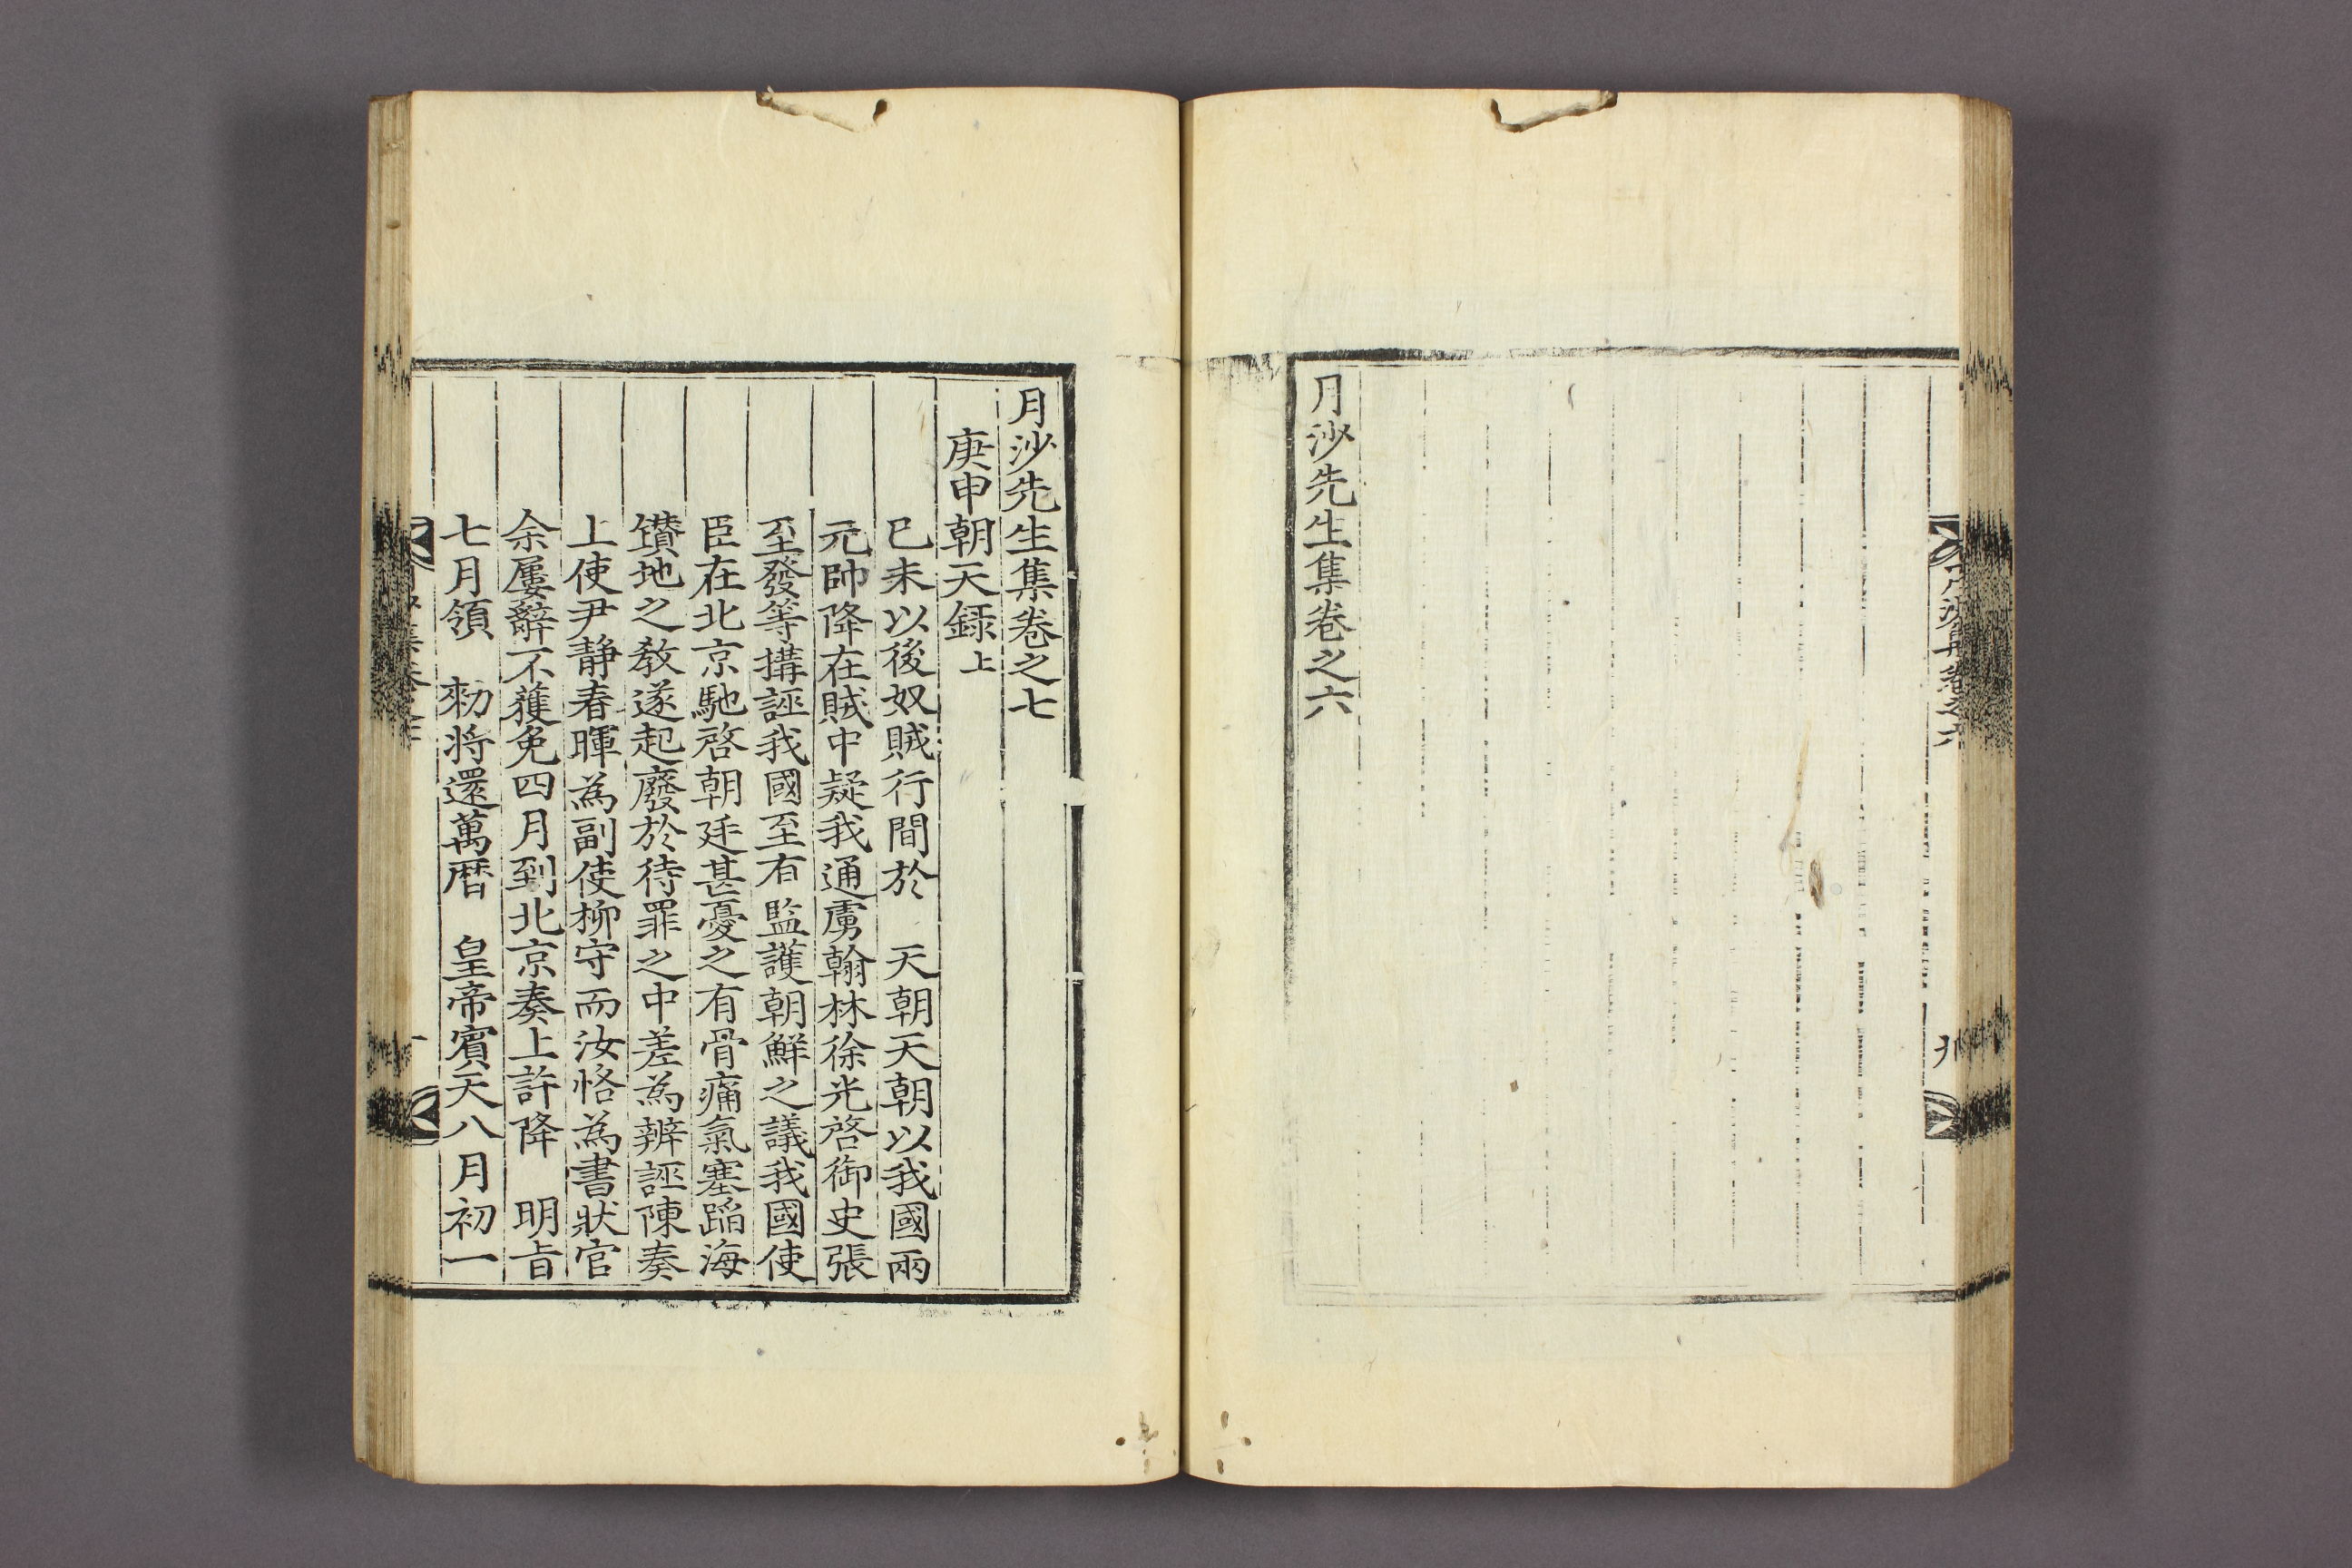 月沙先生集卷之六
月沙先生集卷之七
庚申朝天録上
己未以後奴賊行間於　天朝天朝以我國兩
元帥降在賊中疑我通虜翰林徐光啓御史張
至發等搆誣我國至有監護朝鮮之議我國使
臣在北京馳啓朝廷甚憂之有骨痛氣塞蹈海
鑽地之敎遂起廢於待罪之中差為辨誣陳奏
上使尹靜春暉為副使柳守而汝恪為書狀官
余屢辭不獲免四月到北京奏上許降　明旨
七月領　勑將還萬曆　皇帝賓天八月初一